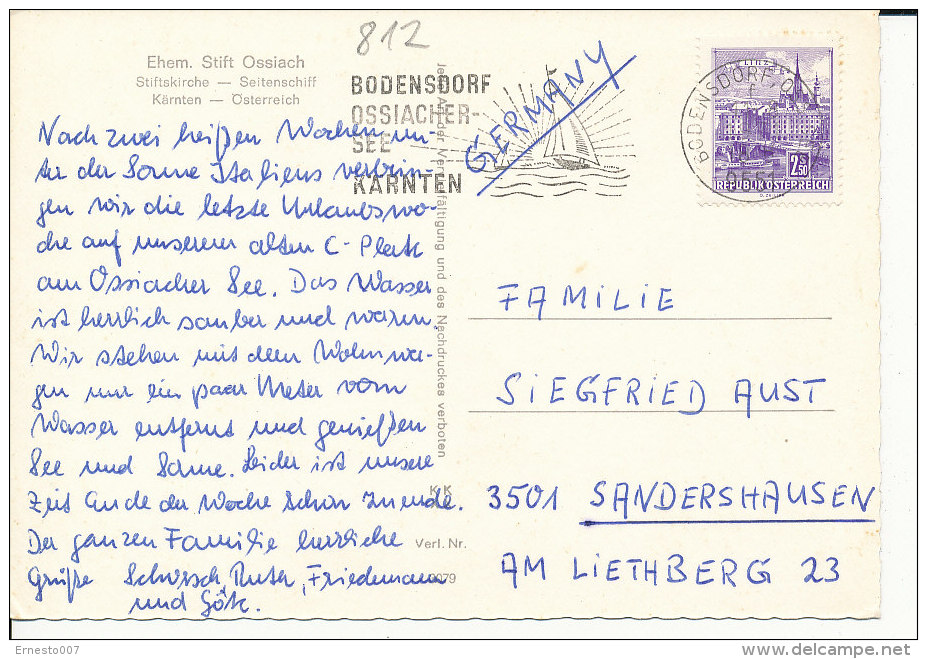 812
Ehem. Stift Ossiach
Stiftskirche — Seitenschiff
Kärnten — Österreich
BODENSDORF
OSSIACHER-
SEE
KÄRNTEN
GERMANY
BODENSDORF
LINZ
2.50
REPUBLIK ÖSTERREICH
Nach zwei heißen Wochen un-
ter der Sonne Italiens verbrin-
gen wir die letzte Urlaubswo-
che auf unserem alten C-Platz
am Ossiacher See. Das Wasser
ist herrlich sauber und warm.
Wir stehen mit dem Wohnwa-
gen nur ein paar Meter vom
Wasser entfernt und genießen
See und Sonne. Leider ist unsere
Zeit Ende der Woche schon zu ende.
Der ganzen Familie herrliche
Grüße Ruth, Friedemann
und Götz.
Vervielfältigung und des Nachdruckes verboten
K K
Verl. Nr.
FAMILIE
SIEGFRIED AUST
3501 SANDERSHAUSEN
AM LIETHBERG 23
Ernesto007
delcampe.net